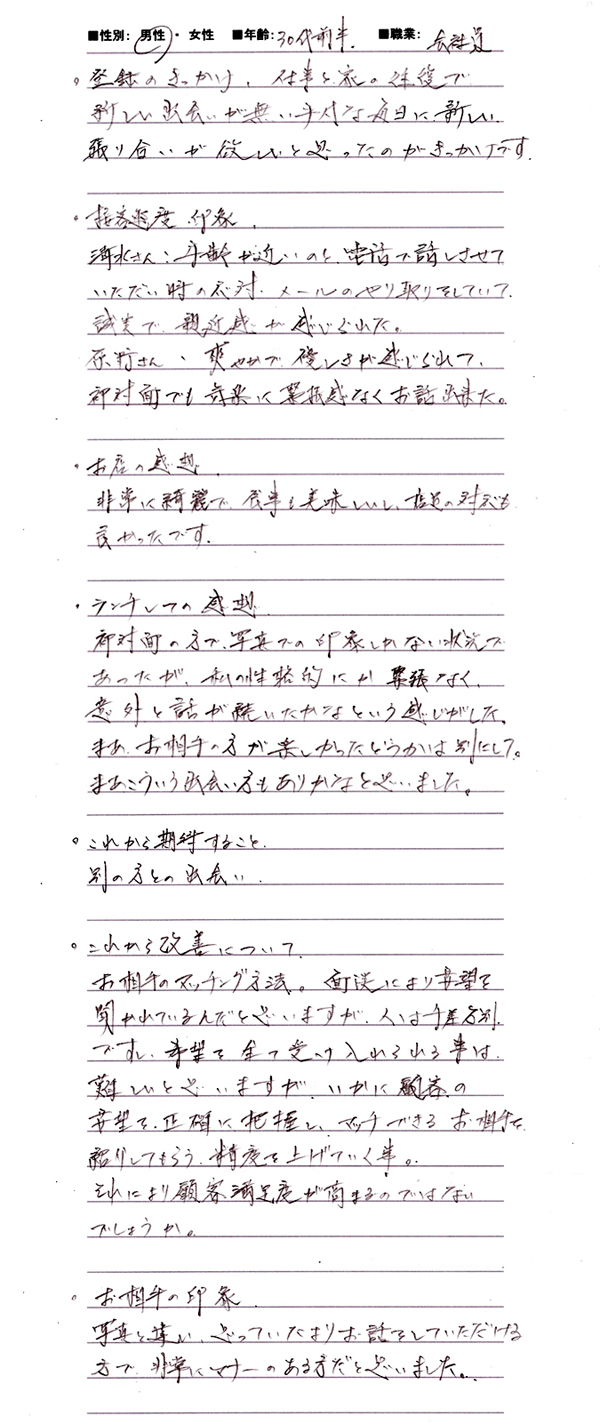 ■性別: 男性 ・ 女性 ■年齢: 30代前半. ■職業: 会社員
。登録のきっかけ、仕事と家の往復で
新しい出会いが無い 毎日に新しい
張り合いが欲しいと思ったのがきっかけです.
・接客態度、印象.
清水さん: 年齢が近いのと、電話で話しさせて
いただい時の応対、メールのやり取りをしていて、
誠実で、親近感が感じられた。
さん、爽やかで優しさが感じられて、
初対面でも気楽に緊張感なくお話出来た。
・お店の感想.
非常に綺麗で、食事も美味しいし、店員の対応も
良かったです.
・ランチレフの感想.
初対面の方で、写真での印象しかない状況で
あったが、私の性格的にか緊張なく、
意外と話が続いたかなという感じがした。
まあ、お相手の方が楽しかったどうかは別にして。
まあこういう出会い方もありかなと思いました。
。これから期待すること.
別の方との出会い.
。これから改善について.
お相手のマッチング方法。面談により希望を
聞かれているんだと思いますが、人は千差万別
ですし、希望を全て受け入れられる事は、
難しいと思いますが、いかに顧客の
希望を、正確に把握し、マッチできるお相手を
紹介してもらう、精度を上げていく事。
それにより顧客満足度が高まるのではない
でしょうか。
。お相手の印象.
写真と違い、思っていたよりお話をしていただける
方で、非常にマナーのある方だと思いました。